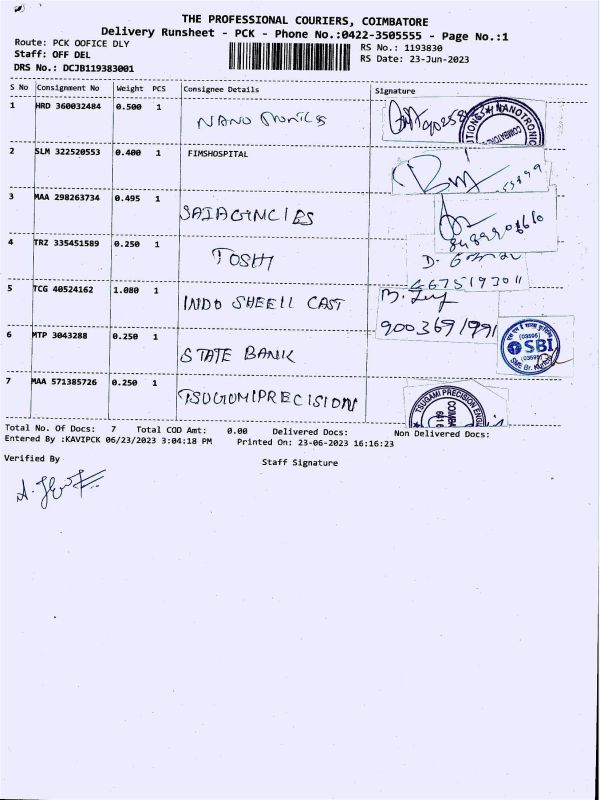 THE PROFESSIONAL COURIERS, COIMBATORE
Delivery Runsheet - PCK - Phone No.:0422-3505555 - Page No.:1
Route: PCK OOFICE DLY
RS No.: 1193830
Staff: OFF DEL
RS Date: 23-Jun-2023
DRS No.: DCJB119383001
S No Consignment No Weight PCS Consignee Details Signature
1 HRD 360032484 0.500 1 NANO TRONICS
2 SLM 322520553 0.400 1 FIMSHOSPITAL
3 MAA 298263734 0.495 1 SAIAGINCIES
4 TRZ 335451589 0.250 1 TOSHI
5 TCG 40524162 1.080 1 INDO SHEELL CAST
9003691991
6 MTP 3043288 0.250 1 STATE BANK
SBI
7 MAA 571385726 0.250 1 TSUGUMIPRECISION
TSUGAMI PRECISION ENG
Total No. Of Docs: 7 Total COD Amt: 0.00 Delivered Docs: Non Delivered Docs:
Entered By :KAVIPCK 06/23/2023 3:04:18 PM Printed On: 23-06-2023 16:16:23
Verified By Staff Signature